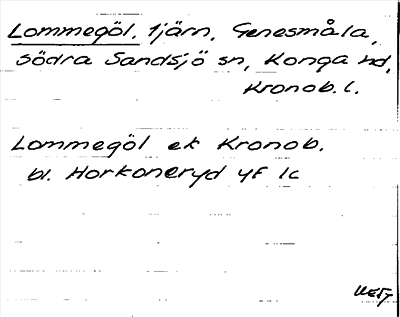 Lommegöl, tjärn, Genesmåla,
södra Sandsjö sn, Konga hd,
Kronob. l.
Lommegöl ek Kronob.
bl. Horkoneryd 4F 1c